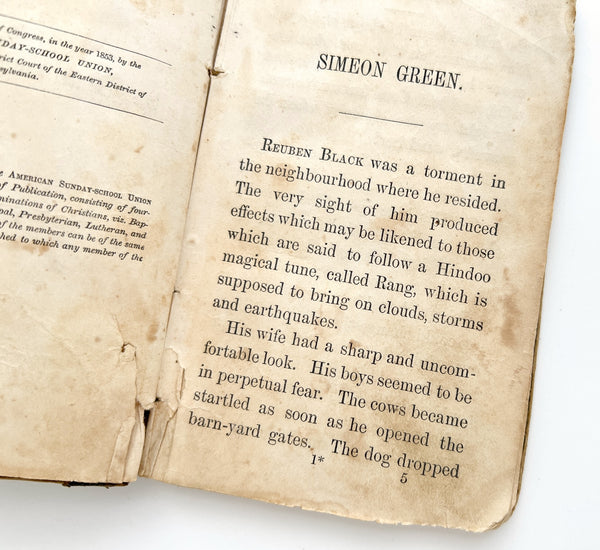 of Congress, in the year 1853, by the
DAY-SCHOOL UNION,
Court of the Eastern District of
AMERICAN SUNDAY-SCHOOL UNION
of Publication, consisting of four-
of Christians, viz. Bap-
Presbyterian, Lutheran, and
of the members can be of the same
to which any member of the
SIMEON GREEN.
REUBEN BLACK was a torment in
the neighbourhood where he resided.
The very sight of him produced
effects which may be likened to those
which are said to follow a Hindoo
magical tune, called Rang, which is
supposed to bring on clouds, storms
and earthquakes.
His wife had a sharp and uncom-
fortable look. His boys seemed to be
in perpetual fear. The cows became
startled as soon as he opened the
barn-yard gates. The dog dropped
1*
5